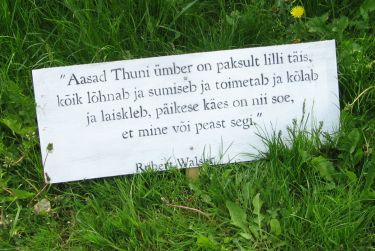 "Aasad Thuni ümber on paksult lilli täis,
kõik lõhnab ja sumiseb ja toimetab ja kõlab
ja laiskleb, päikese käes on nii soe,
et mine või peast segi."
Robert Walser